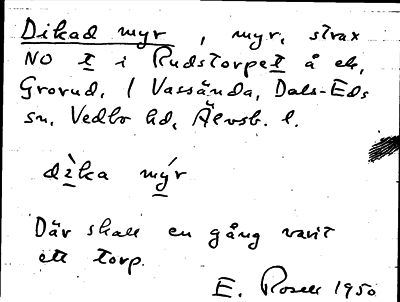 Dikad myr, myr, strax
NO t i Rudstorpet å ek,
Grorud, 1 Vassända, Dals-Eds
sn, Vedbo hd, Älvsb. l.
dìka mýr
Där skall en gång varit
ett torp.
E. Rosell 1950